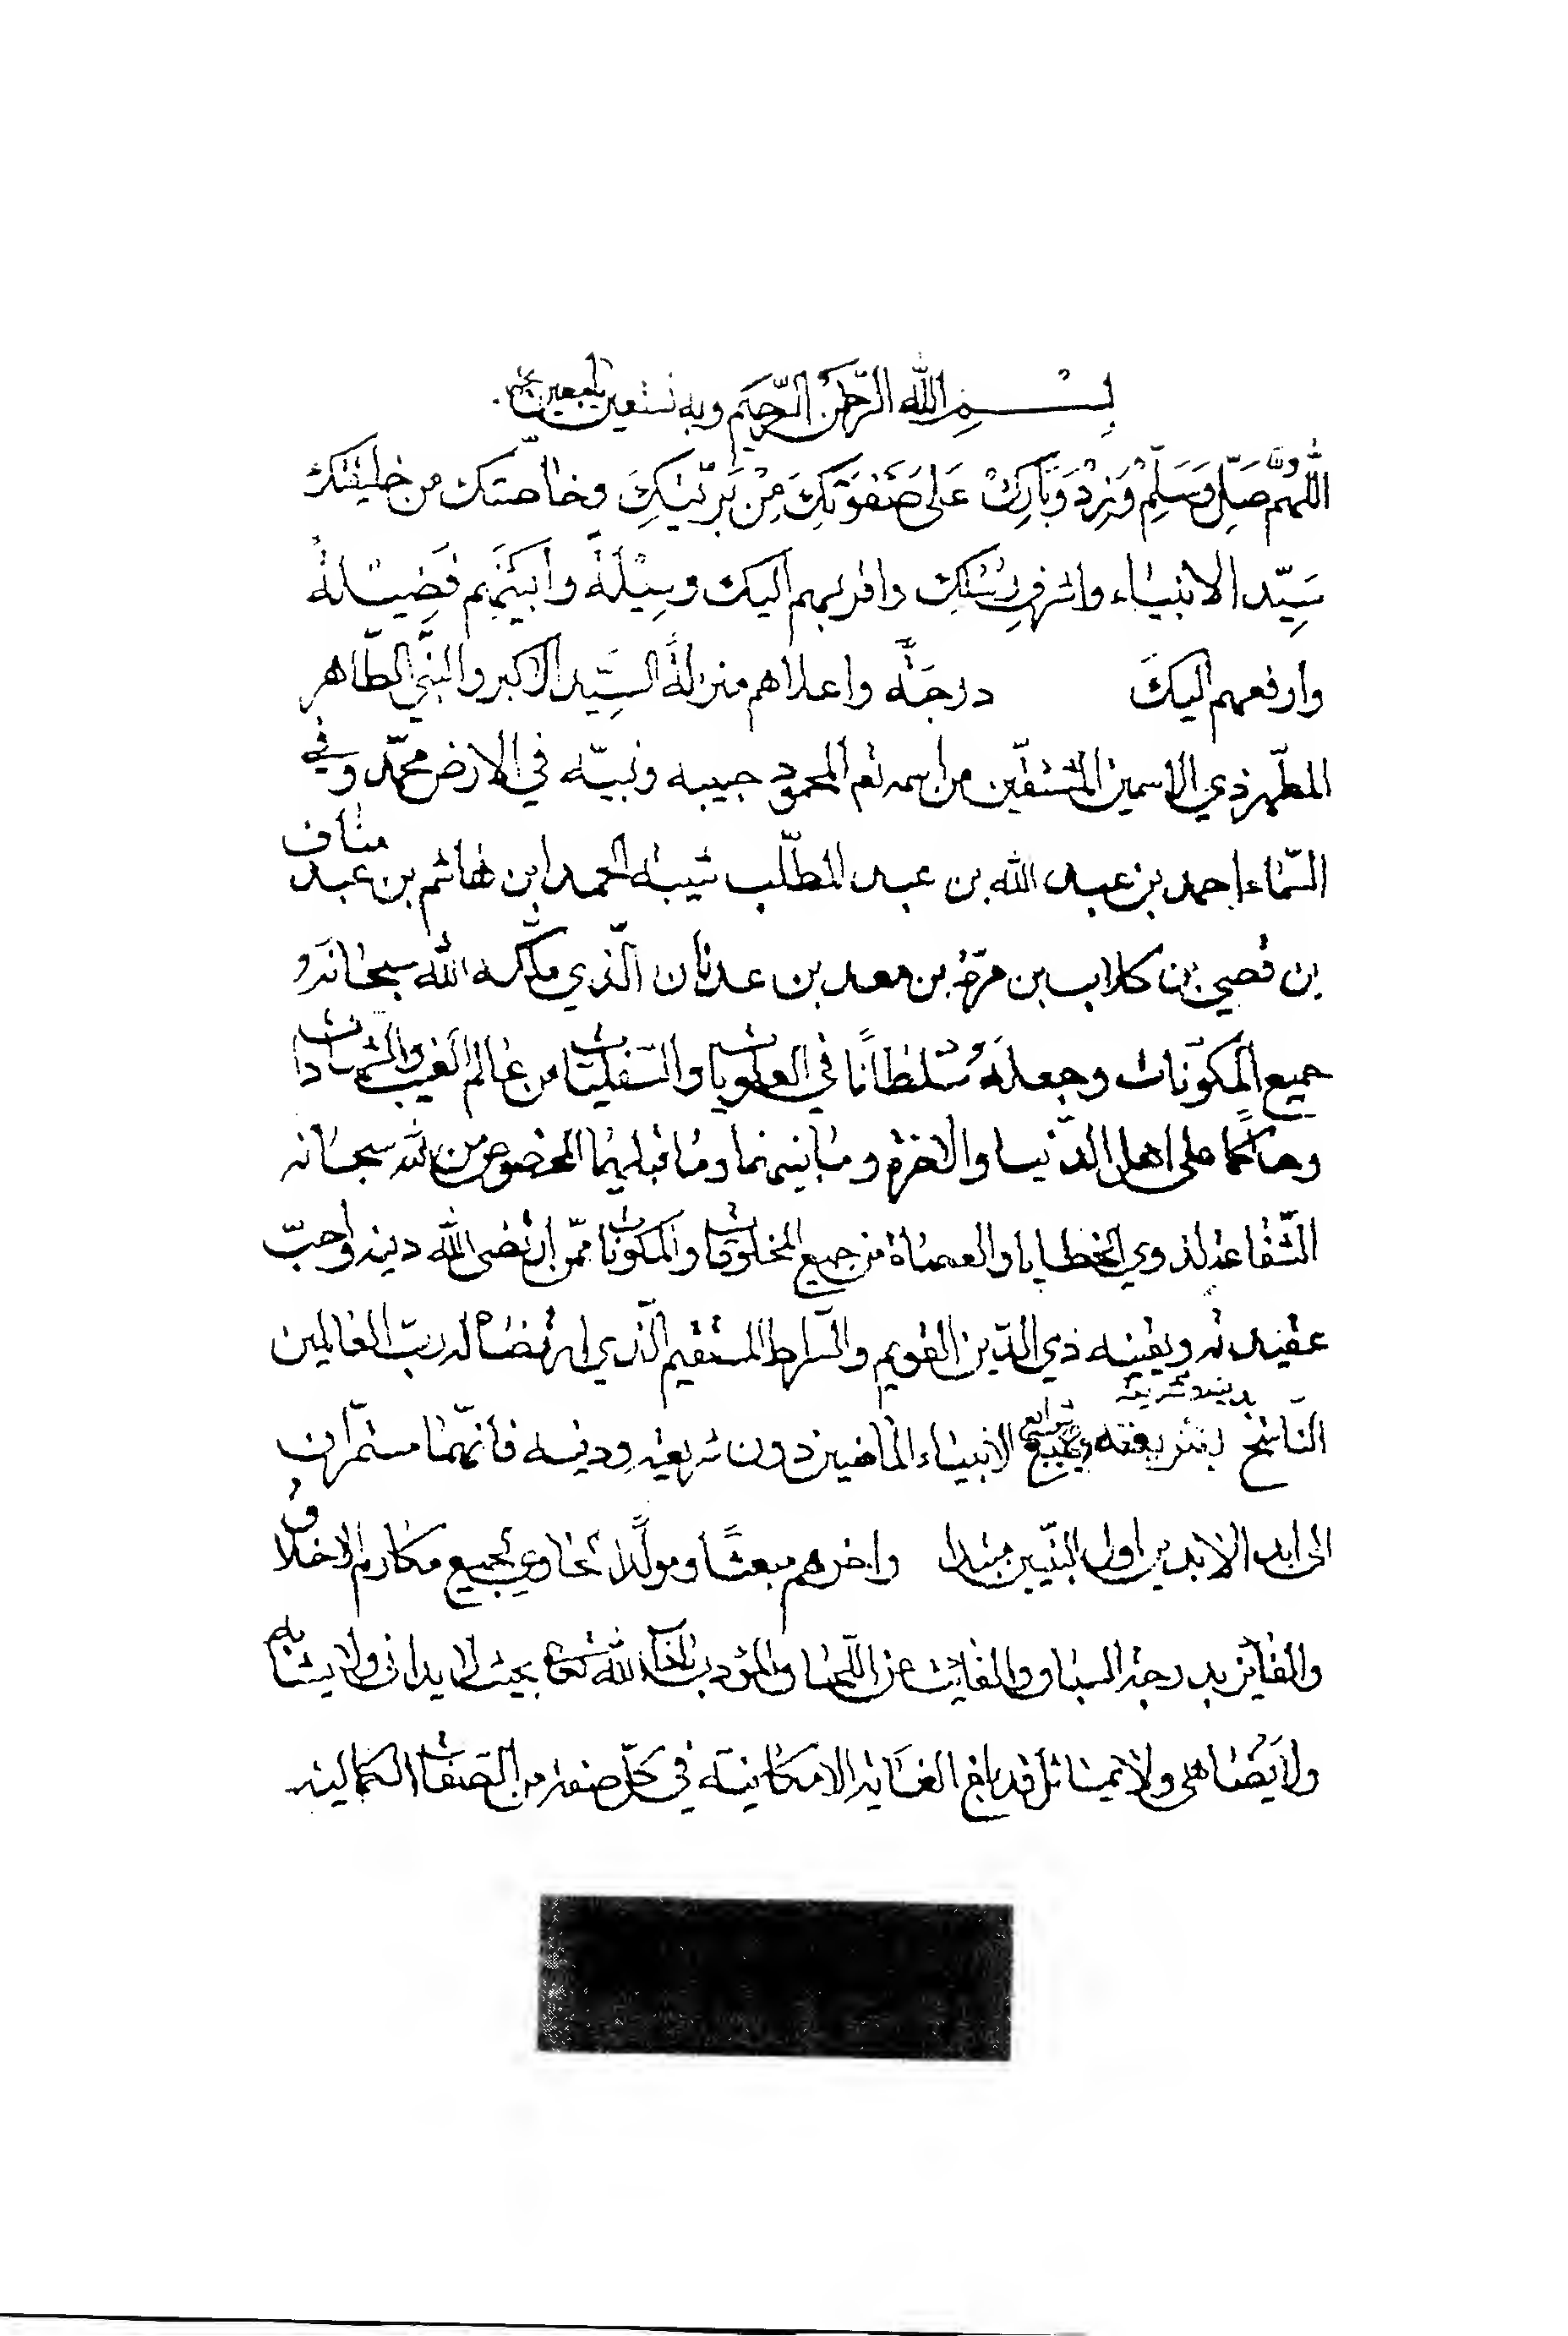 بسم الله الرّحمن الرّحيم وبه نستعين
اللّهمّ صَلِّ وَسَلِّمْ وَزِدْ وَبَارِكْ عَلى صَفوَتِكَ مِنْ بَرِّيتِكَ وخاصّتك من خليقتك
سَيِّد الانبياء واشرفِ رسُلك واقربهم اليك وسِيْلَةً وابينهم فَضِيْلةً
وارفعهم اليكَ درجَةً واعلاهم منزلةً السيِّد الاكبر والنبّي الطّاهر
المطّهر ذي الاسمين المشتقّين من اسمه تعم المحمود حبيبه ونبيّه في الارض محمّد وفي
السّماء احمد بن عبد الله بن عبد المطّلب شيبة الحمد ابن هاشم بن عبد مناف
بن قصي بن كلاب بن مرّة بن معد بن عدنان الّذي ملّكه الله سبحانه و
جميع المكوّنات وجعله سُلطانًا في العلويات والسّفليّات من عالم الغيب والشّهادات
وحاكمًا على اهل الدّنيا والاخرة وما بينهما وما قبليهما المخصوص من الله سبحانه
الشّفاعة لذوي الخطايا والعصاة من جميع المخلوقات والمكونات ممّن ارتضى الله دينه واحبّ
عقيدته ويقينه ذي الدّين القويم والسّراط المستقيم الّذي ارتضاه له ربّ العالمين
النّاسخ بشريعته بدينه شريعته شرايع الانبياء الماضين دون شريعته ودينه فانّهما مستمّران
الى ابد الابدين اول النبّيين مبتدا واخرهم مبعثًا ومولدًا الحاوي لجميع مكارم الاخلاق
والفائز بدرجة السباق والمؤدب الله بحيث لا يدانى ولا يشابه
ولا يُضاهى ولا يماثل قد بلغ الغاية الامكانيّة في كلّ صفة من الصّفات الكمالية